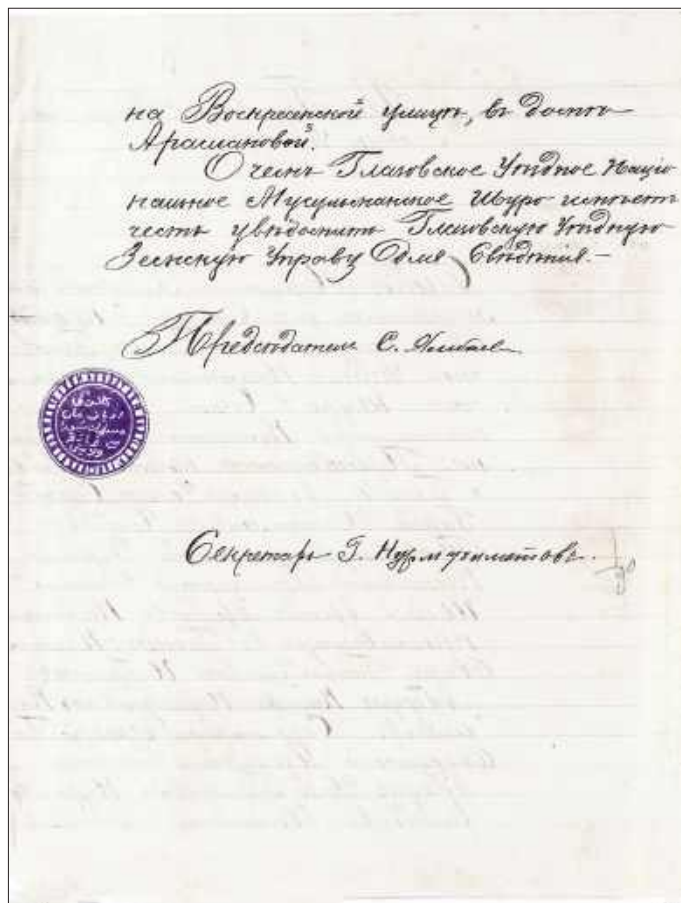 на Воскресенской улицѣ, въ домѣ
Арслановой.
О чемъ Глазовское Уѣздное Націо
нальное Мусульманское Шуро имѣетъ
честь увѣдомить Глазовскую Уѣздную
Земскую Управу для свѣдѣнія.—
Предсѣдатель С.
Секретарь Г. Нурмухаметовъ.